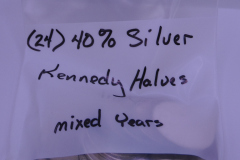 (24) 40% Silver
Kennedy Halves
mixed years